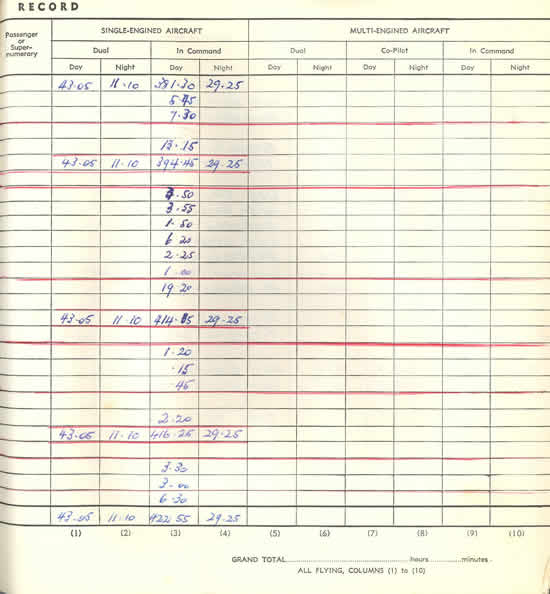 RECORD
Passenger or Super- numerary
SINGLE-ENGINED AIRCRAFT MULTI-ENGINED AIRCRAFT
Dual In Command Dual Co-Pilot In Command
Day Night Day Night Day Night Day Night Day Night
43·05 11·10 381·30 29·25
5·45
7·30
13·15
43·05 11·10 394·45 29·25
3·50
3·55
1·50
6·20
2·25
1·00
19 20
43·05 11·10 414·05 29·25
1·20
·15
·45
2·20
43·05 11·10 416·25 29·25
3·30
3·00
6·30
43·05 11·10 422·55 29·25
(1) (2) (3) (4) (5) (6) (7) (8) (9) (10)
GRAND TOTAL.................... hours ............ minutes
ALL FLYING, COLUMNS (1) to (10)